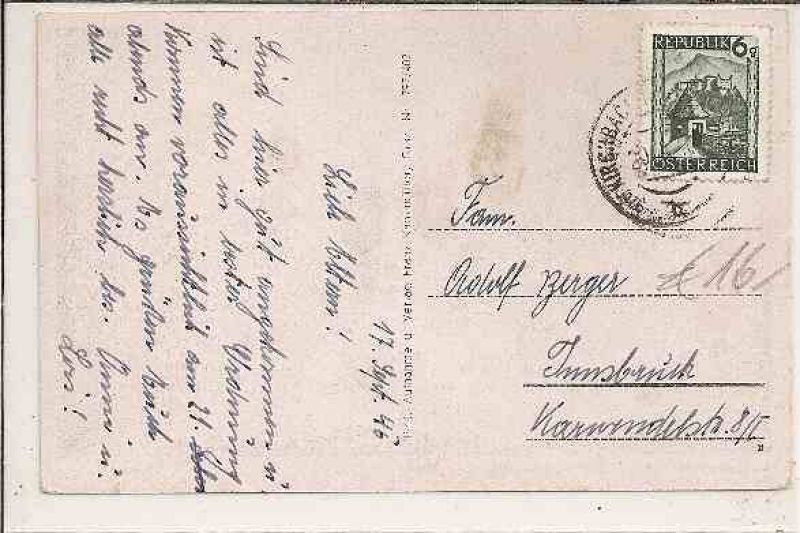 17. Sept. 46
Lieb Eltern!
Sind hier gut angekommen u.
ist alles in bester Ordnung
Kommen voraussichtlich am 21.
abends an. Es grüßen Euch
alle recht herzlich bes. Anna u.
Lois!
REPUBLIK 6g
ÖSTERREICH
Fam.
Adolf Berger
£ 16
Innsbruck
Karwendelstr. 8/II